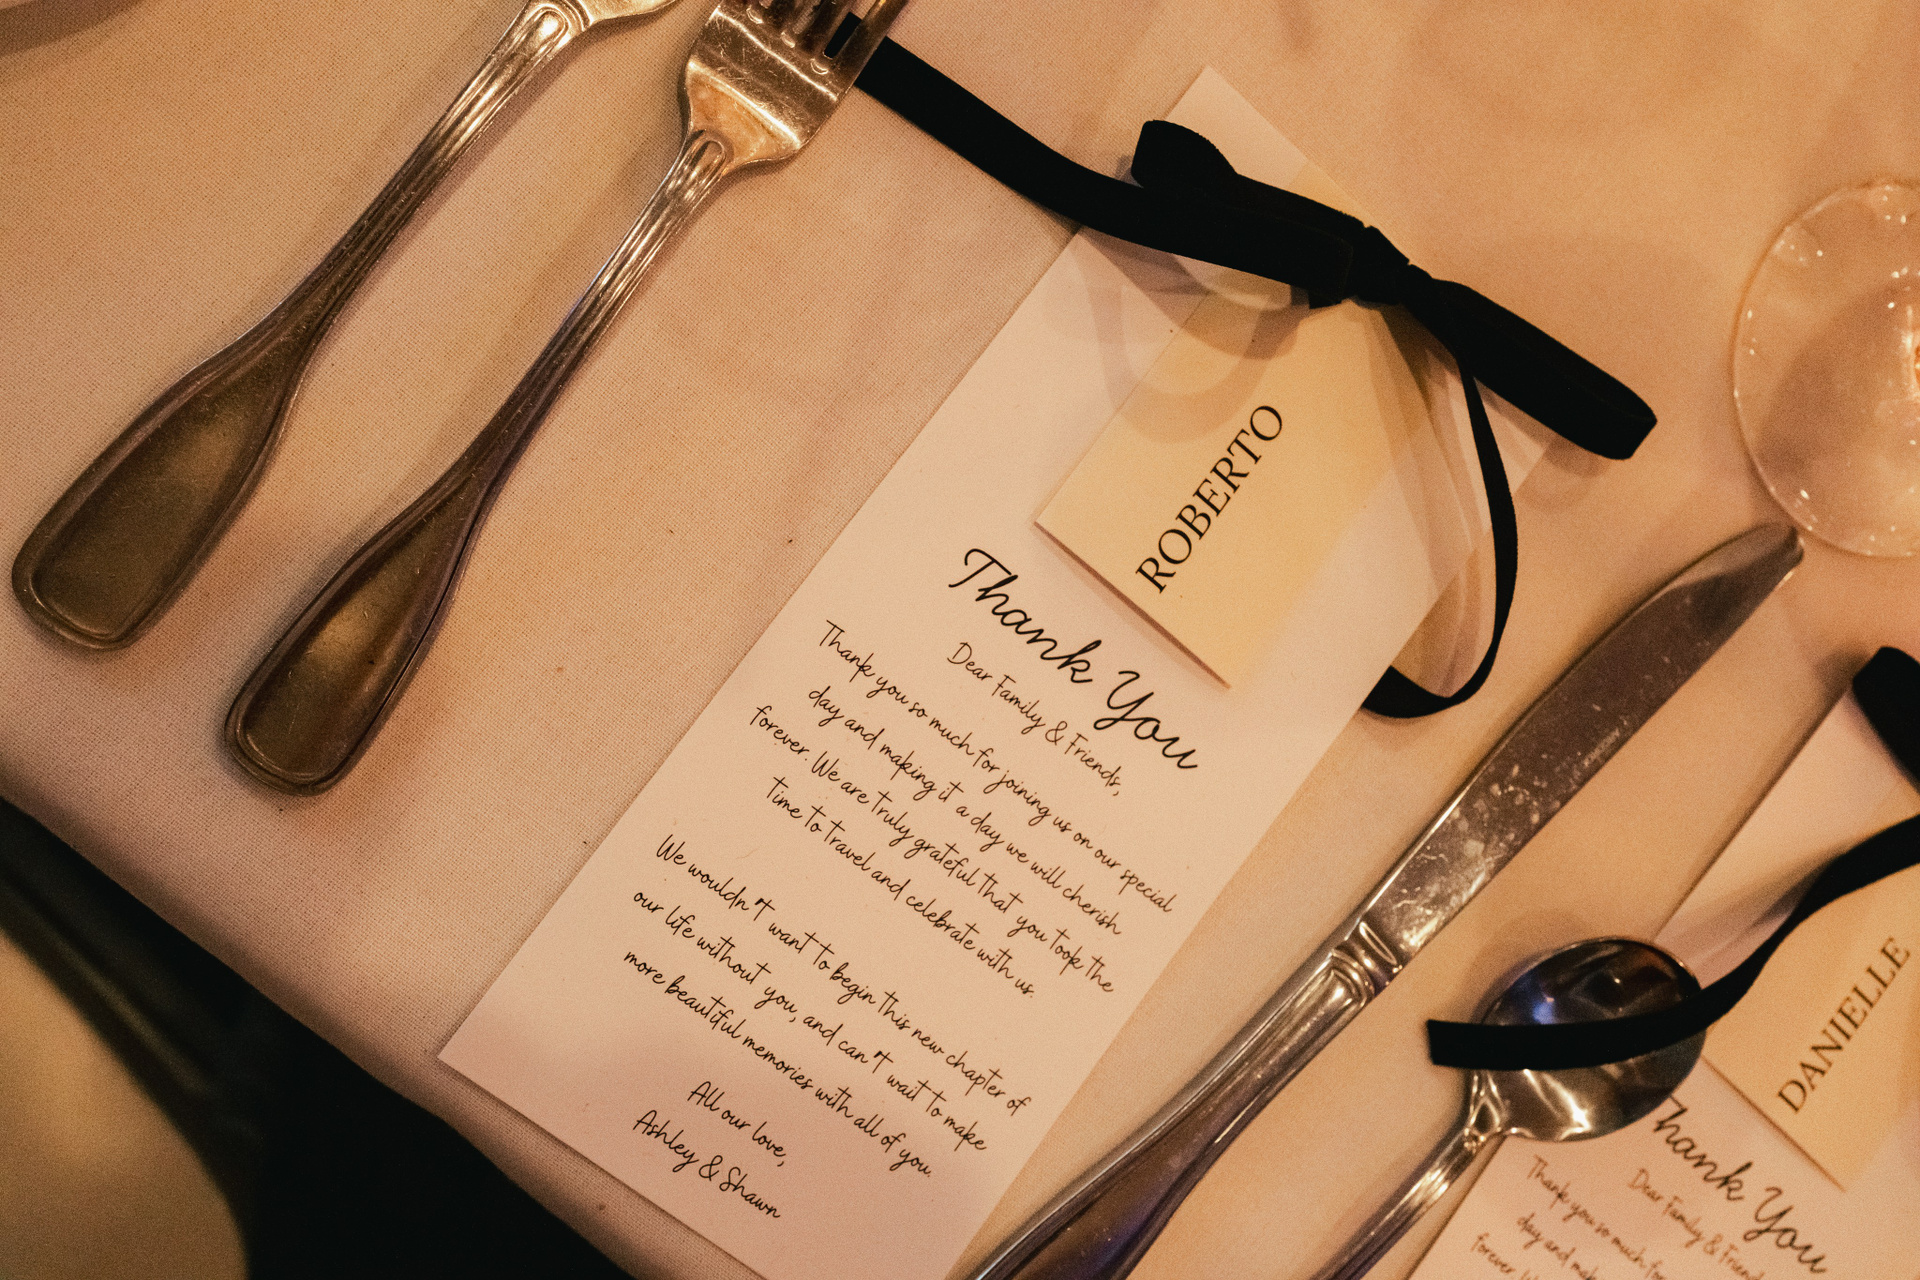 ROBERTO
Thank You
Dear Family & Friends,
Thank you so much for joining us on our special
day and making it a day we will cherish
forever. We are truly grateful that you took the
time to travel and celebrate with us.
We wouldn't want to begin this new chapter of
our life without you, and can't wait to make
more beautiful memories with all of you.
All our love,
Ashley & Shawn
DANIELLE
Thank You
Dear Family & Friend
Thank you so much
day and
forever.